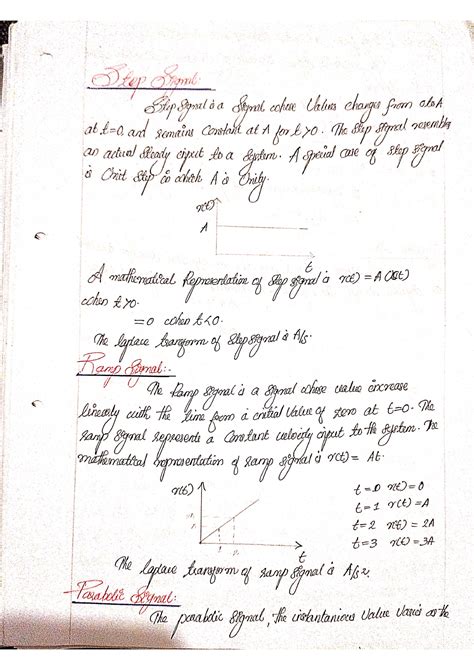 Step Signal:
Step Signal is a Signal whose Values changes from 0 to A
at t=0 and remains Constant at A for t>0. The Step signal resembles
an actual Steady input to a System. A special case of Step Signal
is Unit Step in which A is Unity.
r(t)
A
t
A mathematical Representation of Step Signal is r(t) = A
when t>0.
= 0 when t<0.
The laplace transform of Step signal is A/s.
Ramp Signal:-
The Ramp Signal is a Signal whose value increase
linearly with the time from a initial Value of zero at t=0. The
ramp Signal represents a Constant velocity input to the System. The
mathematical representation of ramp Signal is r(t) = At.
r(t)
t
t=0 r(t)=0
t=1 r(t)=A
t=2 r(t)=2A
t=3 r(t)=3A
The laplace transform of ramp Signal is A/s2.
Parabolic Signal:
The parabolic Signal, the instantanious Value varies as the